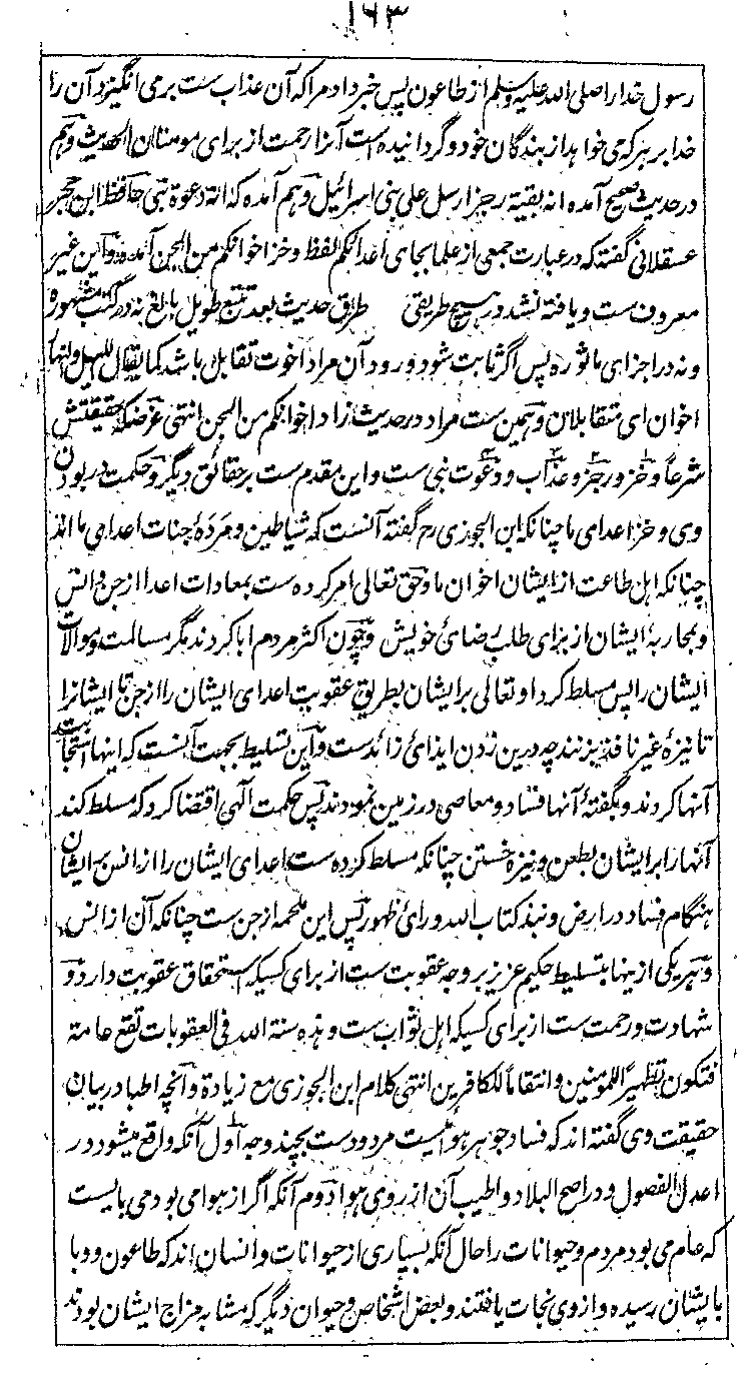 ۱۶۳
رسول خدا را صلی الله علیه وسلم از طاعون پس خبر داد مرا که آن عذاب ست برمی انگیزد آن را
خدا بر هر که می خواهد از بندگان خود و گردانیده است آنرا رحمت از برای مومنان الحدیث و هم
در حدیث صحیح آمده انه بقیته رجز ارسل علی بنی اسرائیل و هم آمده که انه دعوة نبی حافظ ابن حجر
عسقلانی گفته که در عبارت جمعی از علما بجای اعدائکم لفظ وخز اخوانکم من الجن آمده و این غیر
معروف ست و یافته نشد در هیچ طریقی طرق حدیث بعد تتبع طویل بالغ نه در کتب مشهوره
و نه در اجزای ماثوره پس اگر ثابت شود ورود آن مراد اخوت تقابل باشد کما یقال اللیل والنهار
اخوان ای متقابلان و همین ست مراد در حدیث زاد اخوانکم من الجن انتهی غرضکه حقیقتش
شرعاً وخز و رجز و عذاب و دعوت نبی ست و این مقدم ست بر حقائق دیگر و حکمت در بودن
وی وخز اعدای ما چنانکه ابن الجوزی رح گفته آنست که شیاطین و مردهٔ جنات اعدای ما اند
چنانکه اهل طاعت از ایشان اخوان ما و حق تعالی امر کرده ست بمعادات اعدا از جن و انس
و بمحاربهٔ ایشان از برای طلب رضائ خویش و چون اکثر مردم ابا کردند مگر مسالمت و موالات
ایشان را پس مسلط کرد او تعالی بر ایشان بطریق عقوبت اعدای ایشان را از جن تا ایشانرا
تا نیزهٔ غیر نافذ بزنند چه درین زدن ایذائ زائد ست و این تسلیط بجهت آنست که اینها استجابت
آنها کردند و بگفتهٔ آنها فساد و معاصی در زمین نمودند پس حکمت الهی اقتضا کرد که مسلط کند
آنها را بر ایشان بطعن و نیزه خستن چنانکه مسلط کرده ست اعدای ایشان را از انس بر ایشان
هنگام فساد در ارض و نبذ کتاب الله ورائ ظهور پس این ملحمه از جن ست چنانکه آن از انس
و هر یکی از ینها بتسلیط حکیم عزیز بر وجه عقوبت ست از برای کسیکه استحقاق عقوبت دارد و
شهادت و رحمت ست از برای کسیکه اهل ثواب ست و هذه سنة الله فی العقوبات تقع عامة
فتکون تطهیراً للمؤمنین و انتقاماً للکافرین انتهی کلام ابن الجوزی مع زیادة و آنچه اطبا در بیان
حقیقت وی گفته اند که فساد جوهر هواست مردود ست بچند وجه اول آنکه واقع میشود در
اعدل الفصول و در اصح البلاد و اطیب آن از روی هوا دوم آنکه اگر از هوا می بود می بایست
که عام می بود مردم و حیوانات را حال آنکه بسیاری از حیوانات و انسان اند که طاعون و وبا
بایشان رسیده و از وی نجات یافتند و بعض اشخاص و حیوان دیگر که مشابه مزاج ایشان بودند